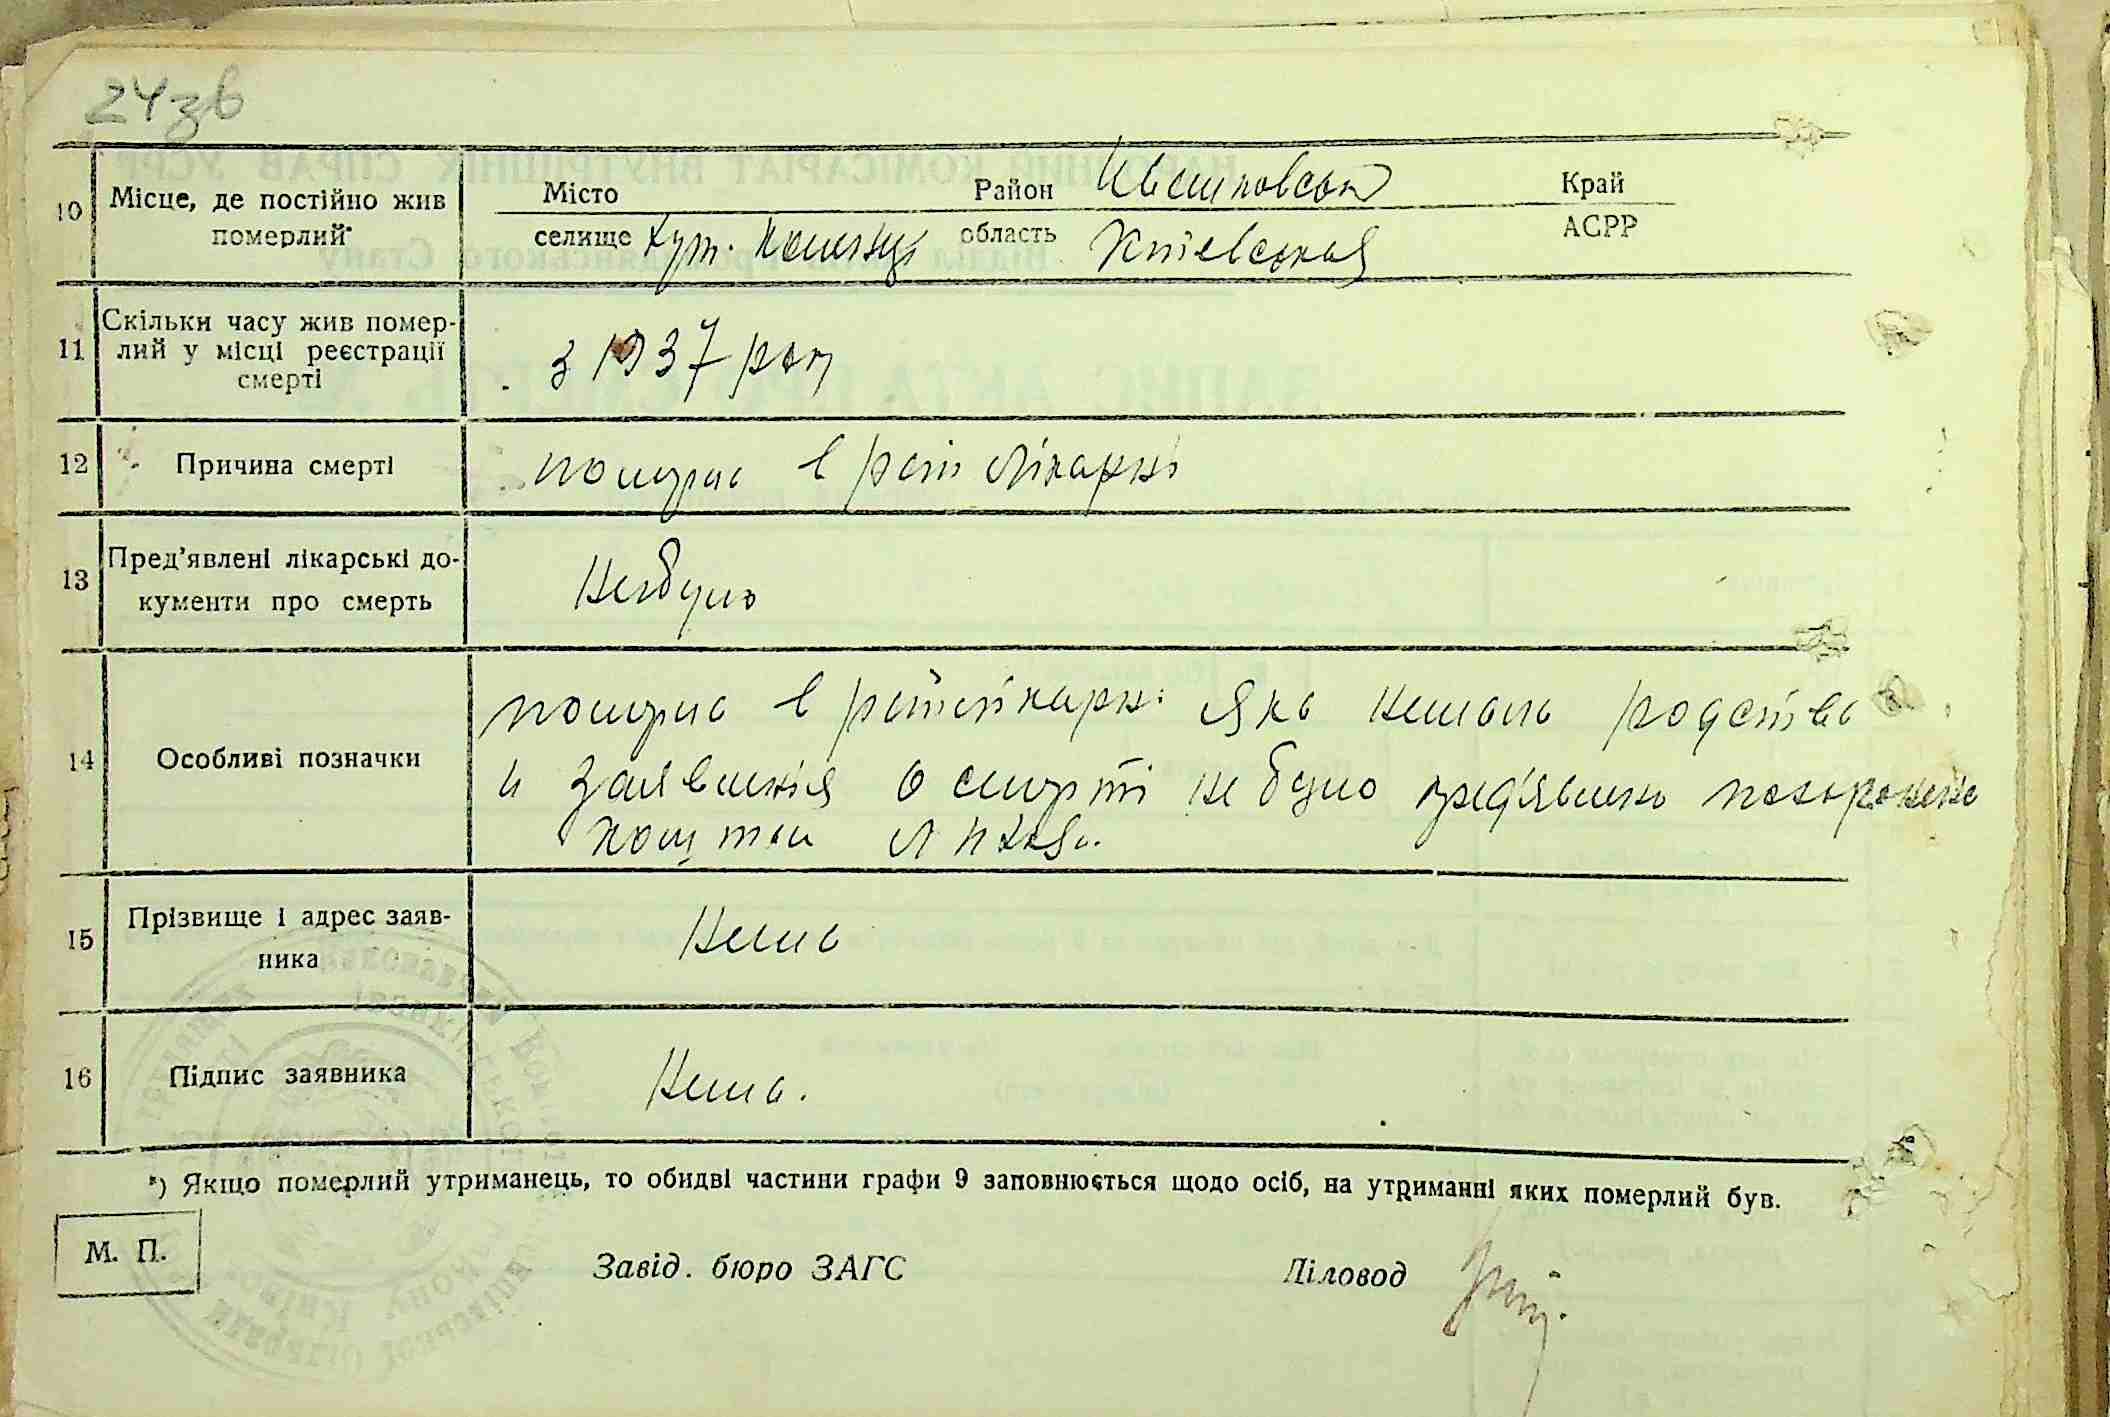 24зв
10 Місце, де постійно жив померлий Місто Район Край
селище Хут. область Київская АСРР
11 Скільки часу жив помер-
лий у місці реєстрації
смерті
з 1937 рок
12 Причина смерті померла в рай лікарні
13 Пред’явлені лікарські до-
кументи про смерть
Небуло
14 Особливі позначки
померла в райлікарні яка немала родства
и заявления о смерті не було предявлено похоронено
кошти
15 Прізвище і адрес заяв-
ника
Нема
16 Підпис заявника Нема.
*) Якщо померлий утриманець, то обидві частини графи 9 заповнюється щодо осіб, на утриманні яких померлий був.
М. П. Завід. бюро ЗАГС Діловод